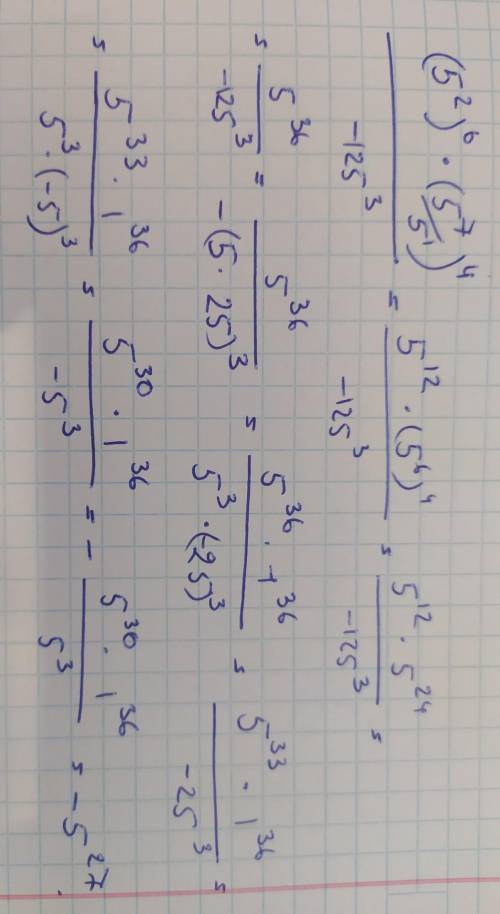 (5²)⁶ · (5⁷/5¹)⁴ / -125³ = 5¹² · (5⁶)⁴ / -125³ = 5¹² · 5²⁴ / -125³ =
= 5³⁶ / -125³ = 5³⁶ / -(5 · 25)³ = 5³⁶ · 1³⁶ / 5³ · (-25)³ = 5³³ · 1³⁶ / -25³ =
= 5³³ · 1³⁶ / 5³ · (-5)³ = 5³⁰ · 1³⁶ / -5³ = - 5³⁰ · 1³⁶ / 5³ = -5²⁷.